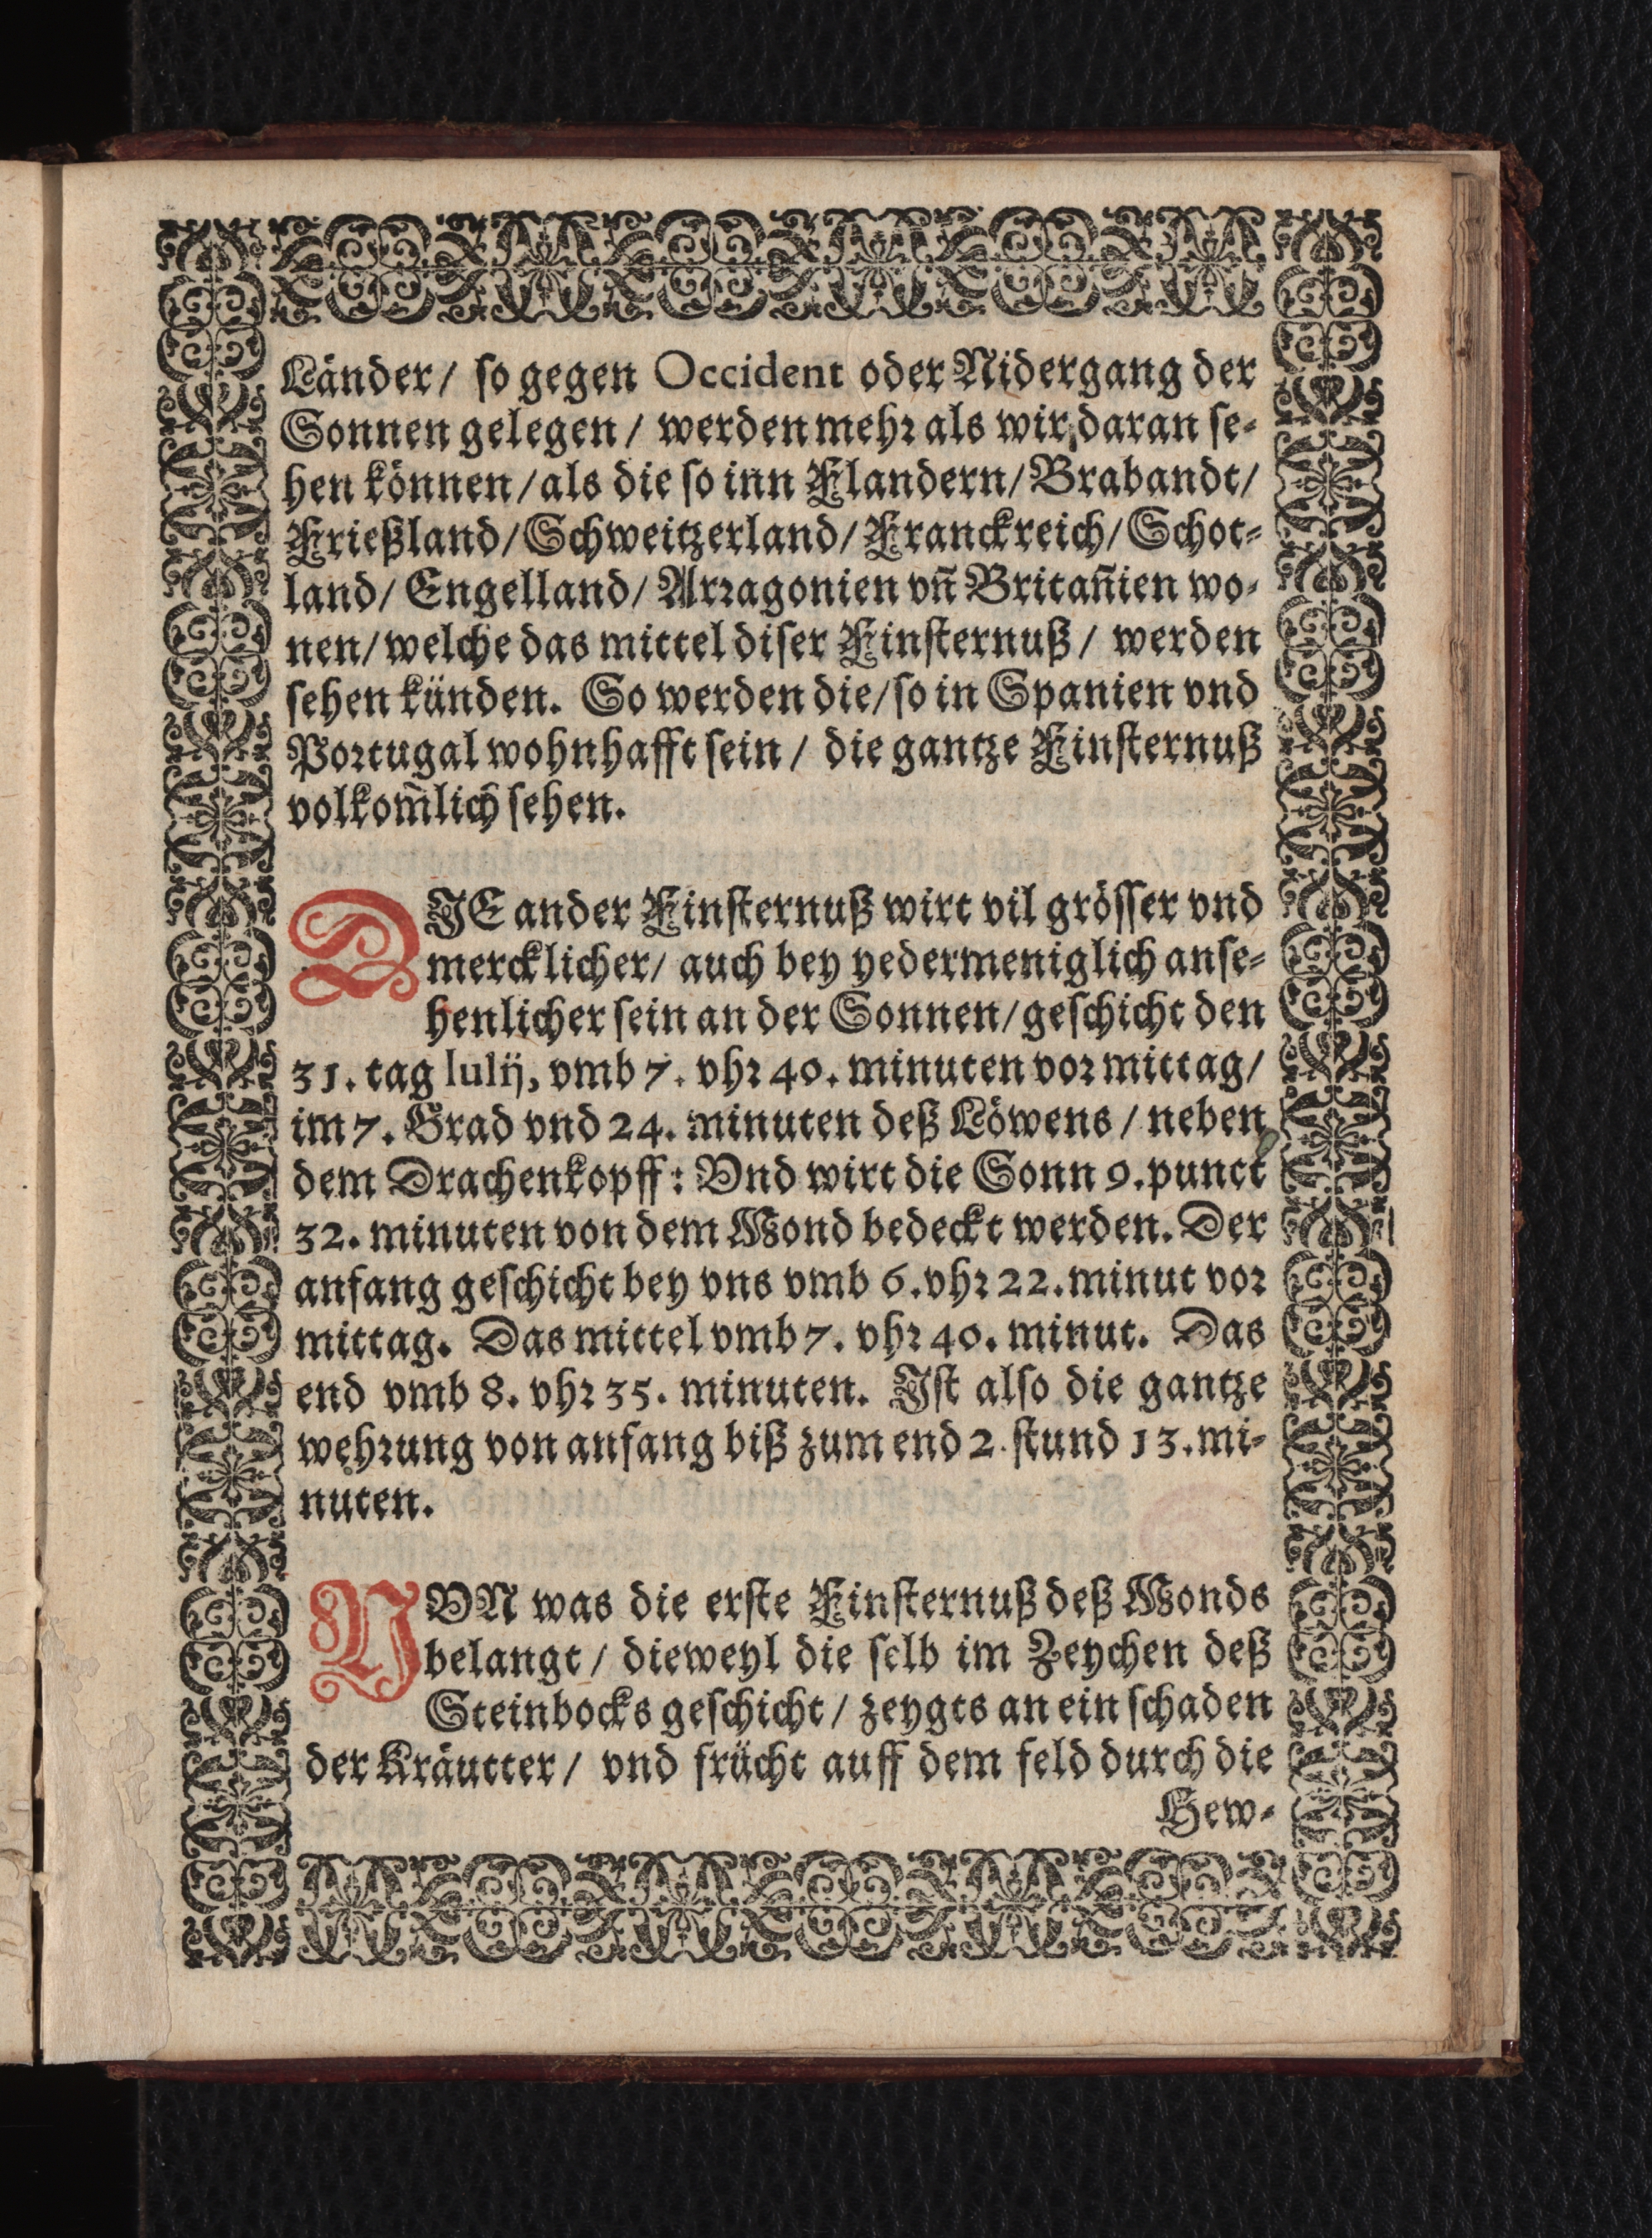 Länder/ so gegen Occident oder Nidergang der
Sonnen gelegen/ werden mehr als wir daran se-
hen können/ als die so inn Flandern/ Brabandt/
Frießland/ Schweitzerland/ Franckreich/ Schot-
land/ Engelland/ Arragonien vñ Britañien wo-
nen/ welche das mittel diser Finsternuß/ werden
sehen künden. So werden die/ so in Spanien vnd
Portugal wohnhafft sein/ die gantze Finsternuß
volkom̃lich sehen.
DIE ander Finsternuß wirt vil grösser vnd
mercklicher/ auch bey yedermeniglich anse-
henlicher sein an der Sonnen/ geschicht den
31. tag Iulij, vmb 7. vhr 40. minuten vor mittag/
im 7. Grad vnd 24. minuten deß Löwens/ neben
dem Drachenkopff: Vnd wirt die Sonn 9. punct
32. minuten von dem Mond bedeckt werden. Der
anfang geschicht bey vns vmb 6. vhr 22. minut vor
mittag. Das mittel vmb 7. vhr 40. minut. Das
end vmb 8. vhr 35. minuten. Ist also die gantze
wehrung von anfang biß zum end 2. stund 13. mi-
nuten.
NVN was die erste Finsternuß deß Monds
belangt/ dieweyl die selb im Zeychen deß
Steinbocks geschicht/ zeygts an ein schaden
der Kräutter/ vnd frücht auff dem feld durch die
Hew-